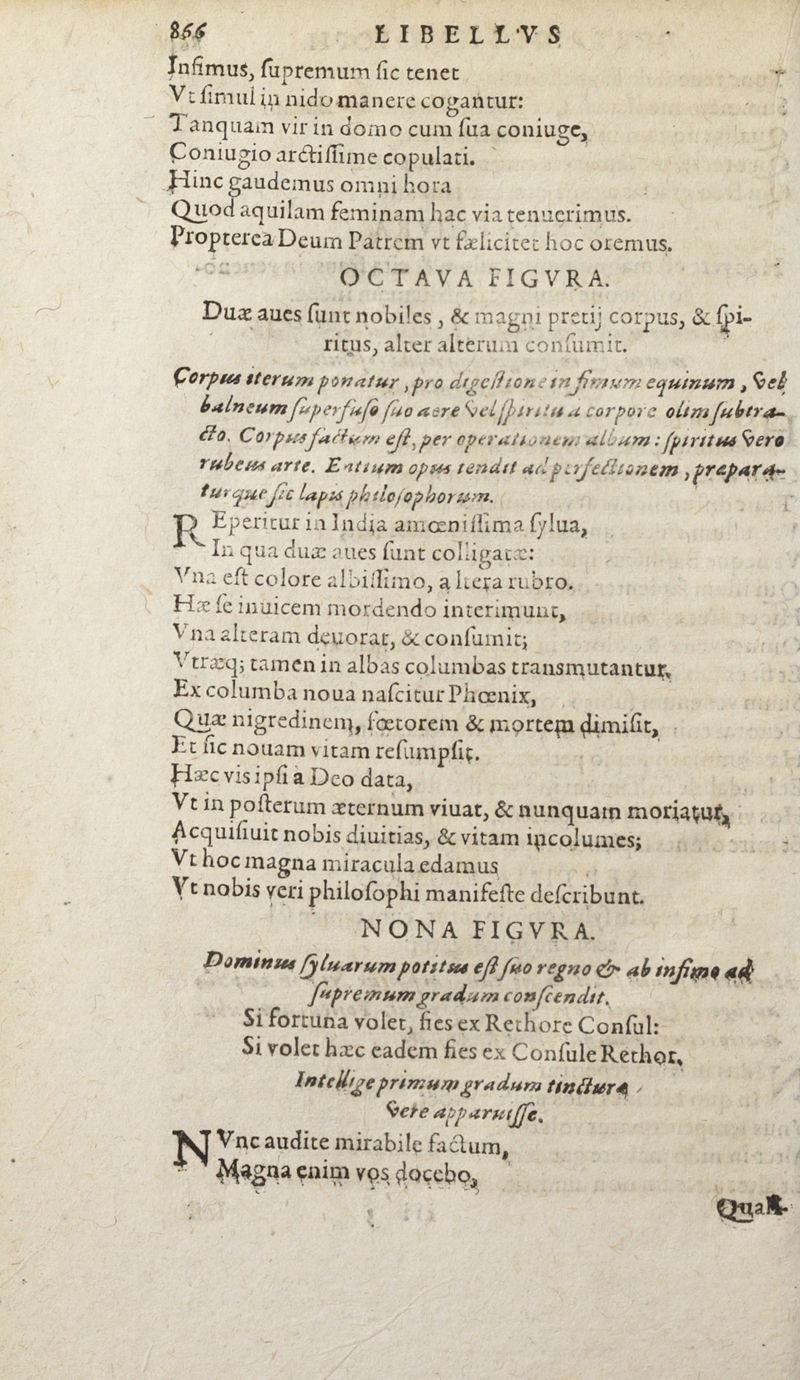 866 LIBELLVS
Infimus, ſupremum ſic tenet
Vt ſimul in nido manere cogantur:
Tanquam vir in domo cum ſua coniuge,
Coniugio arctiſſime copulati.
Hinc gaudemus omni hora
Quod aquilam feminam hac via tenuerimus.
Propterea Deum Patrem vt fælicitet hoc oremus.
OCTAVA FIGVRA.
Duæ aues ſunt nobiles, & magni pretij corpus, & ſpi-
ritus, alter alterum conſumit.
Corpus iterum ponatur, pro digeſtione in fimum equinum, vel
balneum ſuperfuſo ſuo aere vel ſpiritu a corpore olim ſubtra-
cto. Corpus factum eſt, per operationem album: ſpiritus vero
rubeus arte. Entium opus tendit ad perfectionem, præpara-
turque ſic lapis philoſophorum.
REperitur in India amœniſſima ſylua,
In qua duæ aues ſunt colligatæ:
Vna eſt colore albiſſimo, altera rubro.
Hæ ſe inuicem mordendo interimunt,
Vna alteram deuorat, & conſumit;
Vtræq; tamen in albas columbas transmutantur,
Ex columba noua naſcitur Phœnix,
Quæ nigredinem, fœtorem & mortem dimiſit,
Et ſic nouam vitam reſumpſit.
Hæc vis ipſi à Deo data,
Vt in poſterum æternum viuat, & nunquam moriatur,
Acquiſiuit nobis diuitias, & vitam incolumes;
Vt hoc magna miracula edamus
Vt nobis veri philoſophi manifeſte deſcribunt.
NONA FIGVRA.
Dominus ſyluarum potitus eſt ſuo regno & ab infimo ad
ſupremum gradum conſcendit.
Si fortuna volet, fies ex Rethore Conſul:
Si volet hæc eadem fies ex Conſule Rethor,
Intellige primum gradum tincturæ
vere apparuiſſe.
NVnc audite mirabile factum,
Magna enim vos docebo,